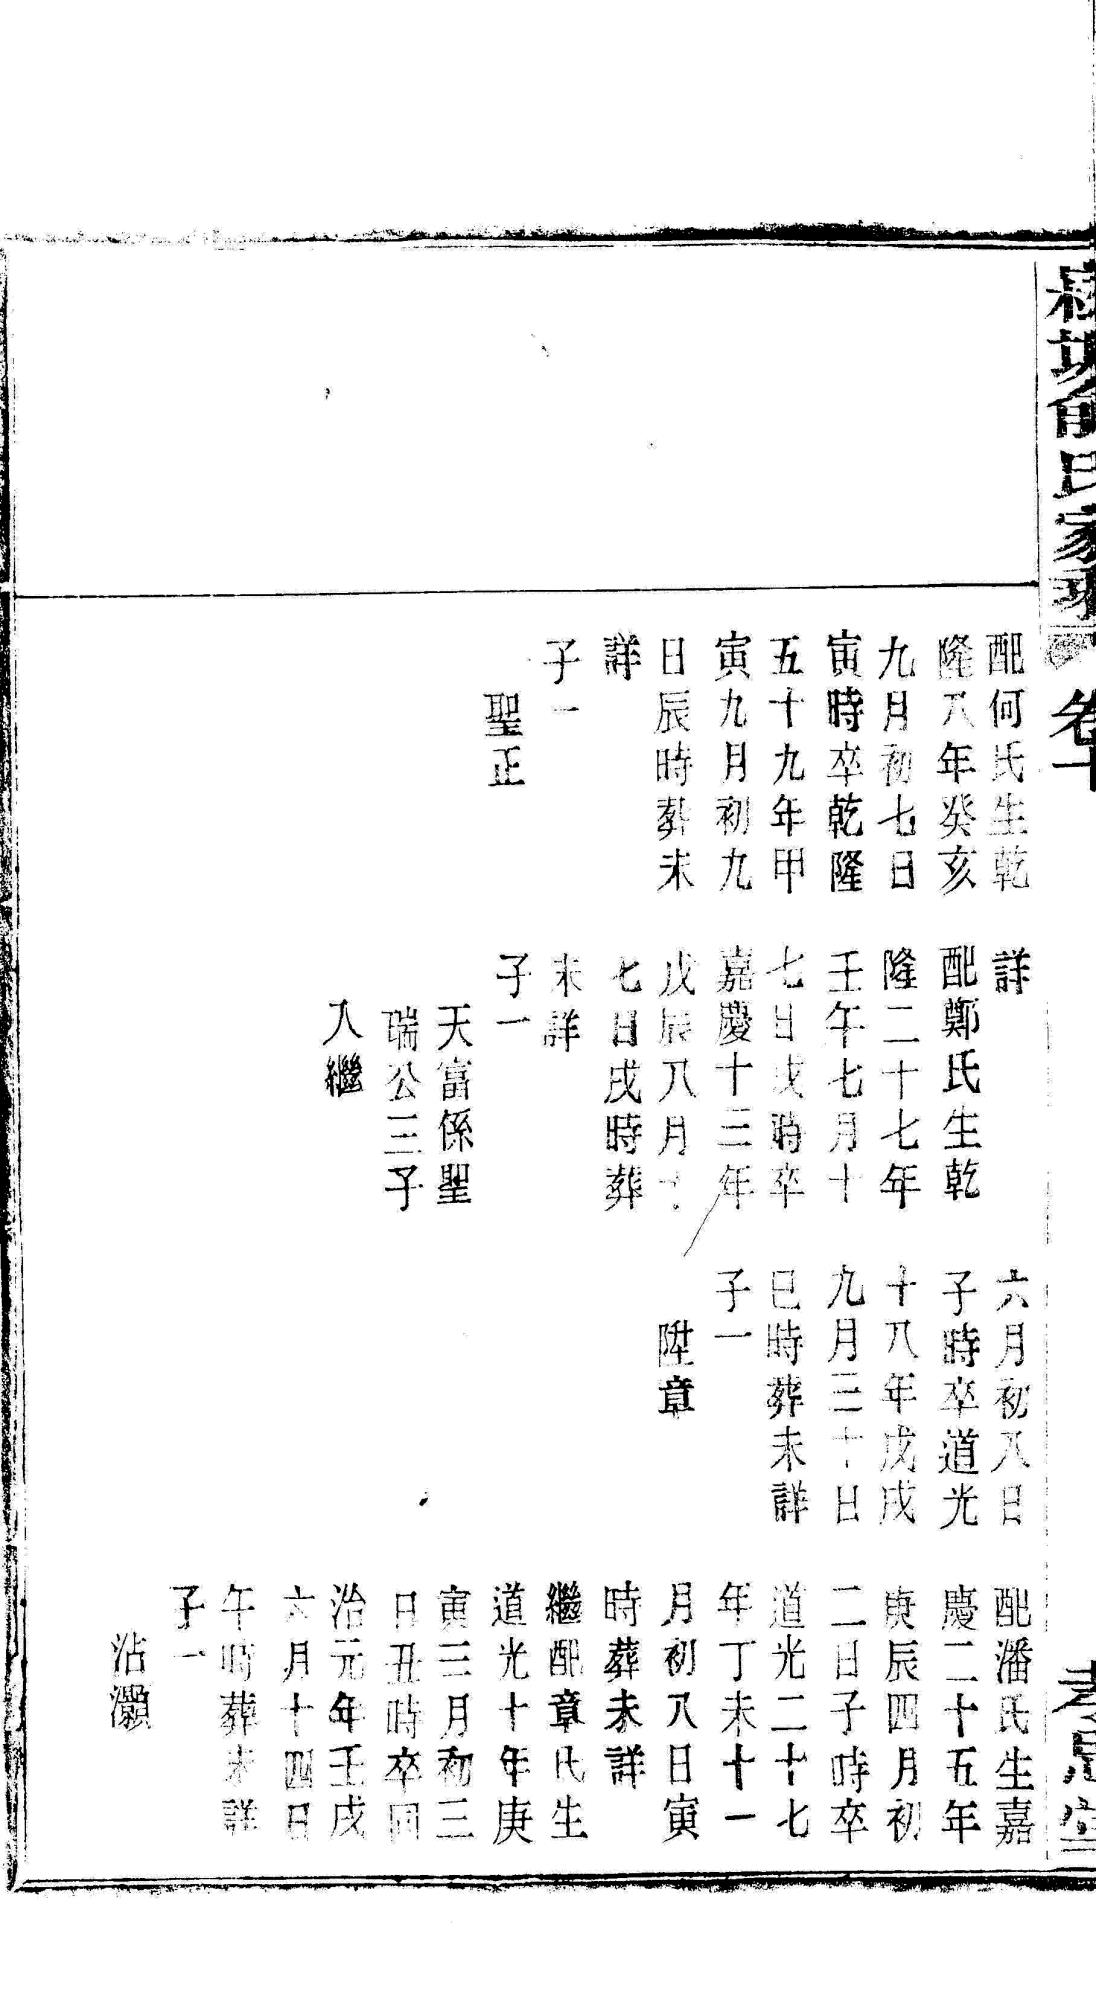 氏家
卷十
配何氏生乾
隆八年癸亥
九月初七日
寅時卒乾隆
五十九年甲
寅九月初九
日辰時葬未
詳
子一
聖正
詳
配鄭氏生乾
隆二十七年
壬午七月十
七日戌時卒
嘉慶十三年
戊辰八月十
七日戌時葬
未詳
子一
天富係聖
瑞公三子
入繼
六月初八日
子時卒道光
十八年戊戌
九月三十日
巳時葬未詳
子一
陞章
配潘氏生嘉
慶二十五年
庚辰四月初
二日子時卒
道光二十七
年丁未十一
月初八日寅
時葬未詳
繼配章氏生
道光十年庚
寅三月初三
日丑時卒同
治元年壬戌
六月十四日
午時葬未詳
子一
沾灝